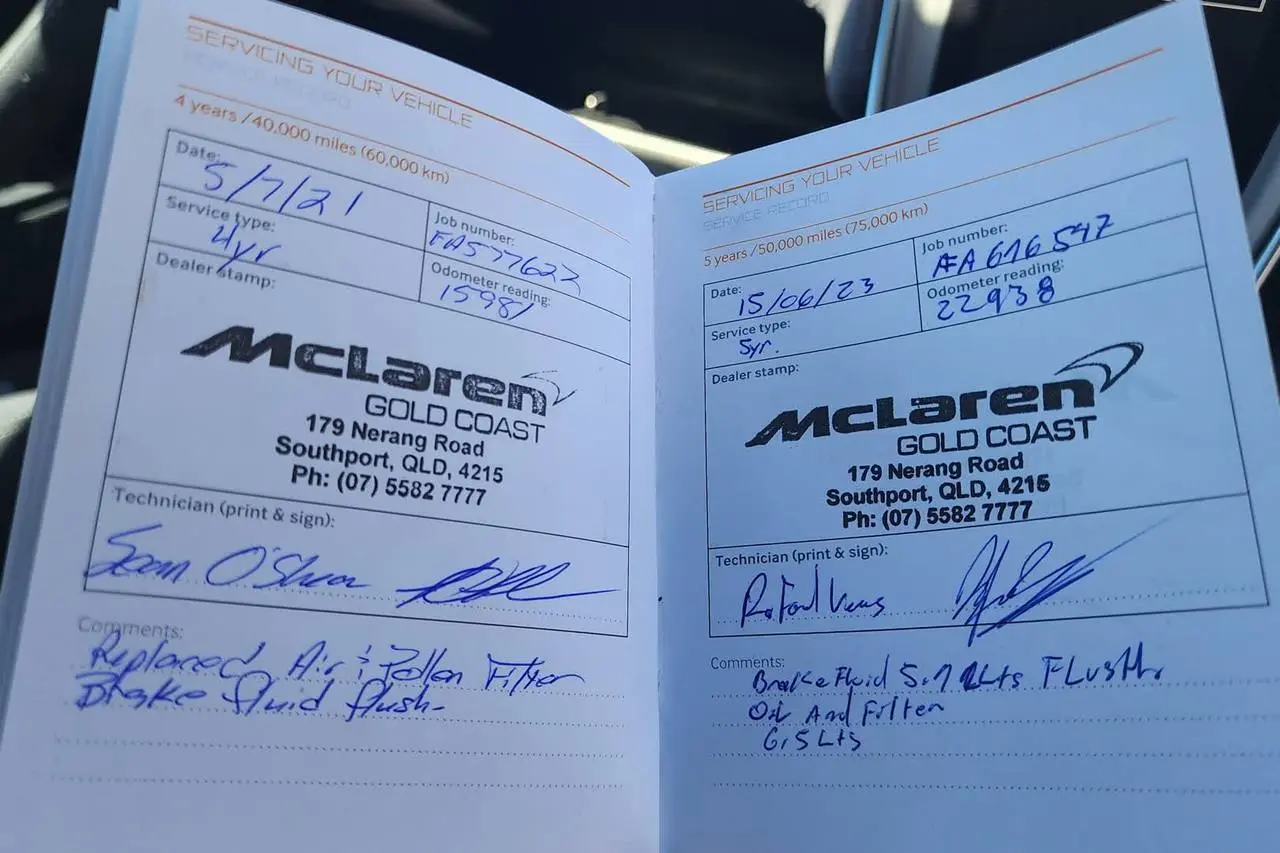 SERVICING YOUR VEHICLE
SERVICE RECORD
4 years /40,000 miles (60,000 km)
Date:
5/7/21
Job number:
FA577622
Service type:
4yr
Odometer reading:
15981
Dealer stamp:
McLaren
GOLD COAST
179 Nerang Road
Southport, QLD, 4215
Ph: (07) 5582 7777
Technician (print & sign):
Sean O'Shea
Comments:
Replaced Air & Pollen Filter
Brake fluid flush
SERVICING YOUR VEHICLE
SERVICE RECORD
5 years /50,000 miles (75,000 km)
Date:
15/06/23
Job number:
FA616547
Service type:
5yr.
Odometer reading:
22938
Dealer stamp:
McLaren
GOLD COAST
179 Nerang Road
Southport, QLD, 4215
Ph: (07) 5582 7777
Technician (print & sign):
Comments:
Brake Fluid Lts
Oil And Filter
6,5 Lts